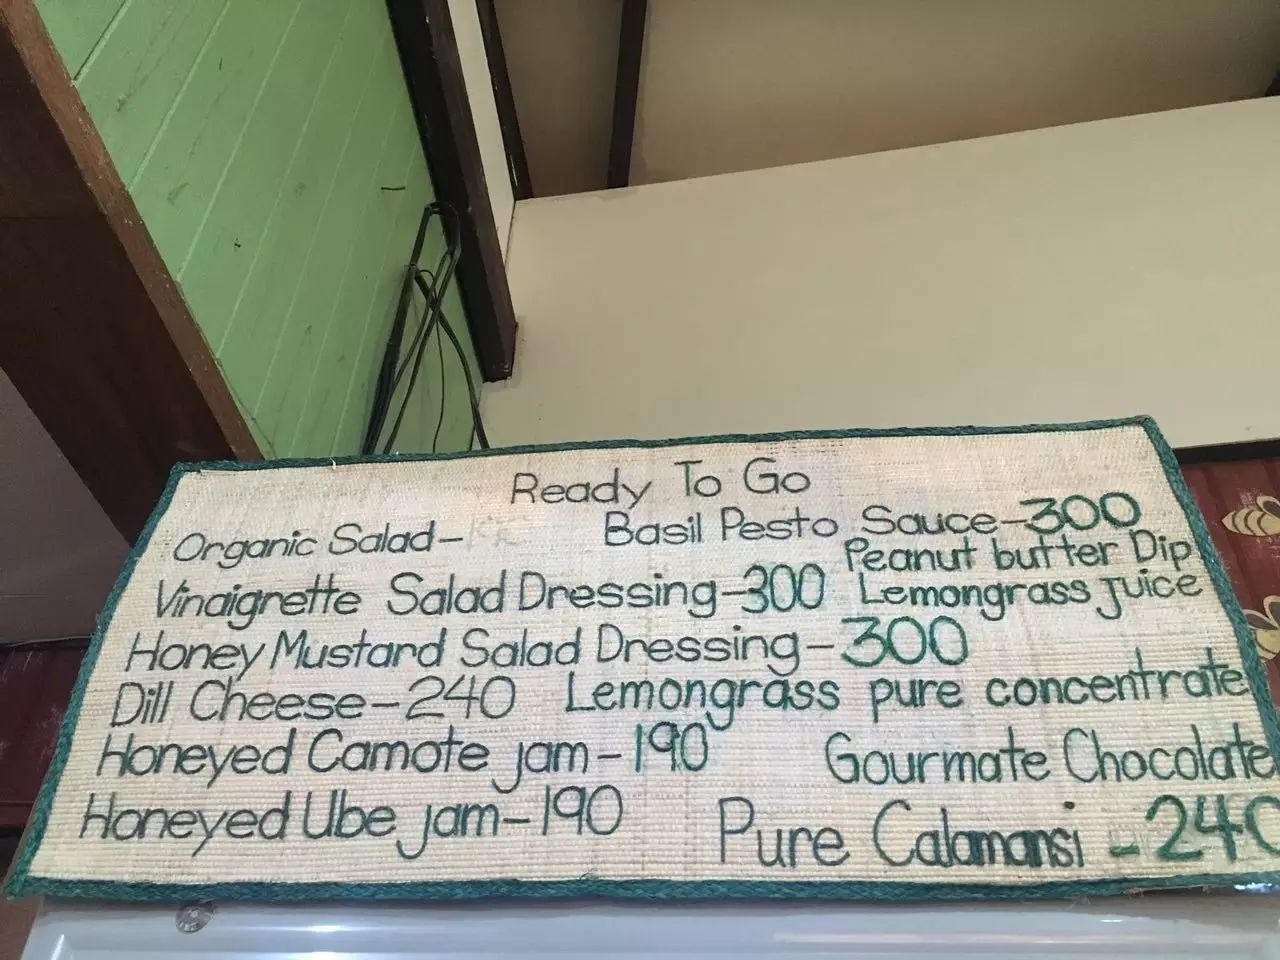 Ready To Go
Organic Salad-
Basil Pesto Sauce-300
Peanut butter Dip
Vinaigrette Salad Dressing-300
Lemongrass juice
Honey Mustard Salad Dressing-300
Dill Cheese-240
Lemongrass pure concentrate
Honeyed Camote jam-190
Gourmate Chocolate
Honeyed Ube jam-190
Pure Calamansi -240